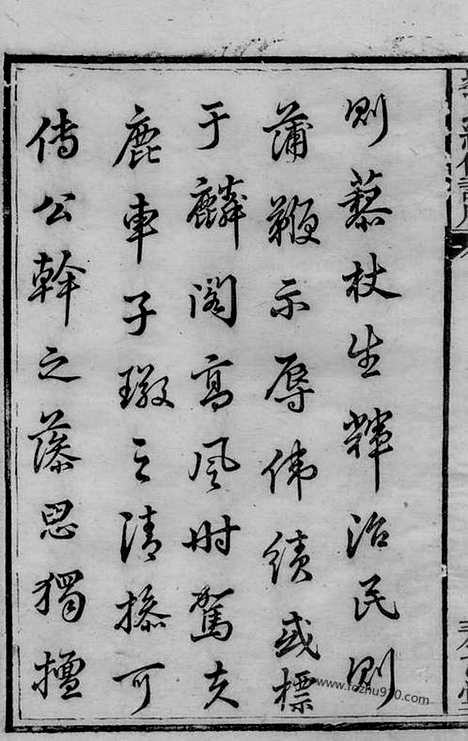 則藜杖生輝治民則
蒲鞭示辱偉績或標
于麟閣高風時駕夫
鹿車子璈之清操可
傳公幹之藻思獨擅
www.fozhu920.com